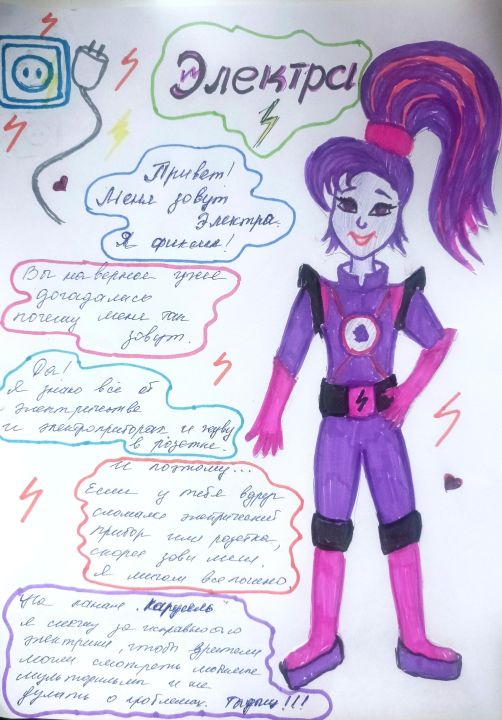 Электра
Привет!
Меня зовут
Электра.
Я фиксик!
Вы наверное уже
догадались
почему меня так
зовут.
Да!
Я знаю все об
электричестве
и электроприборах и живу
в розетке.
И поэтому...
Если у тебя вдруг
сломался электрический
прибор или розетка,
скорее зови меня.
Я мигом все починю.
На канале "Карусель"
я слежу за исправностью
электрики, чтобы зрители
могли смотреть любимые
мультфильмы и не
думать о проблемах. Тыдыщ!!!